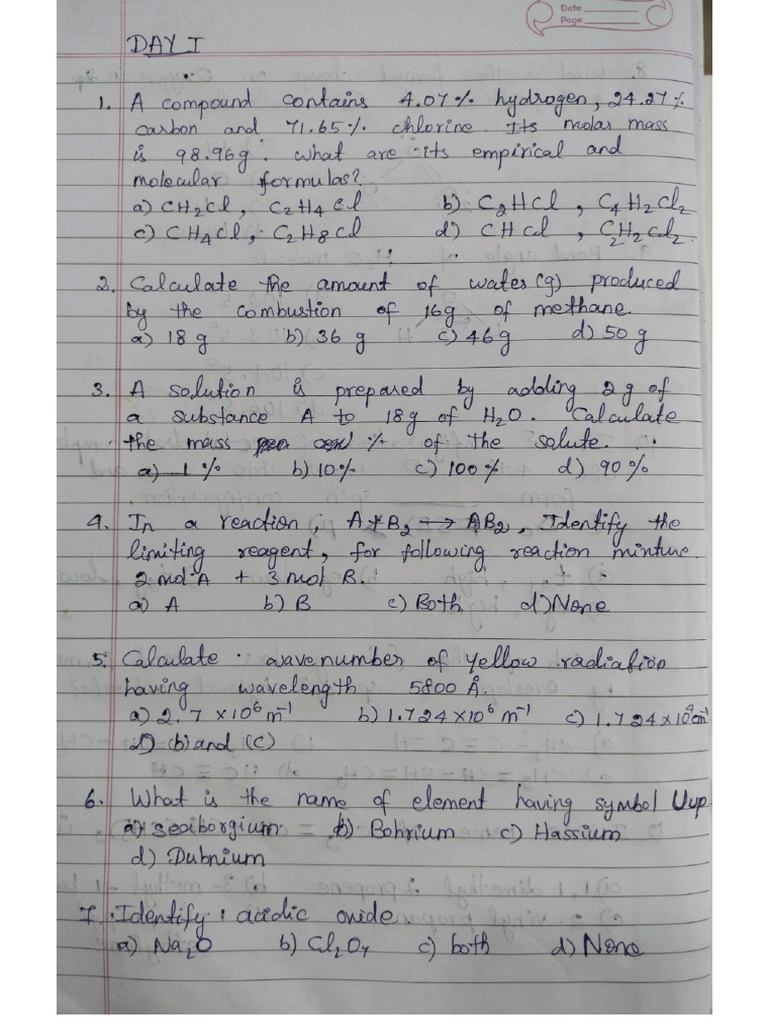 Date
Page
DAY I
1. A compound contains 4.07% hydrogen, 24.27%
carbon and 71.65% chlorine. Its molar mass
is 98.96g. What are its empirical and
molecular formulas?
a) CH2Cl, C2H4Cl b) C2HCl, C4H2Cl2
c) CH4Cl, C2H8Cl d) CHCl, C2H2Cl2.
2. Calculate the amount of water(g) produced
by the combustion of 16g of methane.
a) 18 g b) 36 g c) 46 g d) 50 g
3. A solution is prepared by adding 2 g of
a substance A to 18g of H2O. Calculate
the mass % of the solute.
a) 1 % b) 10% c) 100% d) 90%
4. In a reaction, A + B2 → AB2, Identify the
limiting reagent, for following reaction mixture.
2 mol A + 3 mol B.
a) A b) B c) Both d) None
5. Calculate wavenumber of yellow radiation
having wavelength 5800 Å.
a) 2.7 ×10⁶ m⁻¹ b) 1.724×10⁶ m⁻¹ c) 1.724×10⁴cm⁻¹
d) (b) and (c)
6. What is the name of element having symbol Uup
a) Seaborgium b) Bohrium c) Hassium
d) Dubnium
7. Identify acidic oxide.
a) Na2O b) Cl2O7 c) both d) None